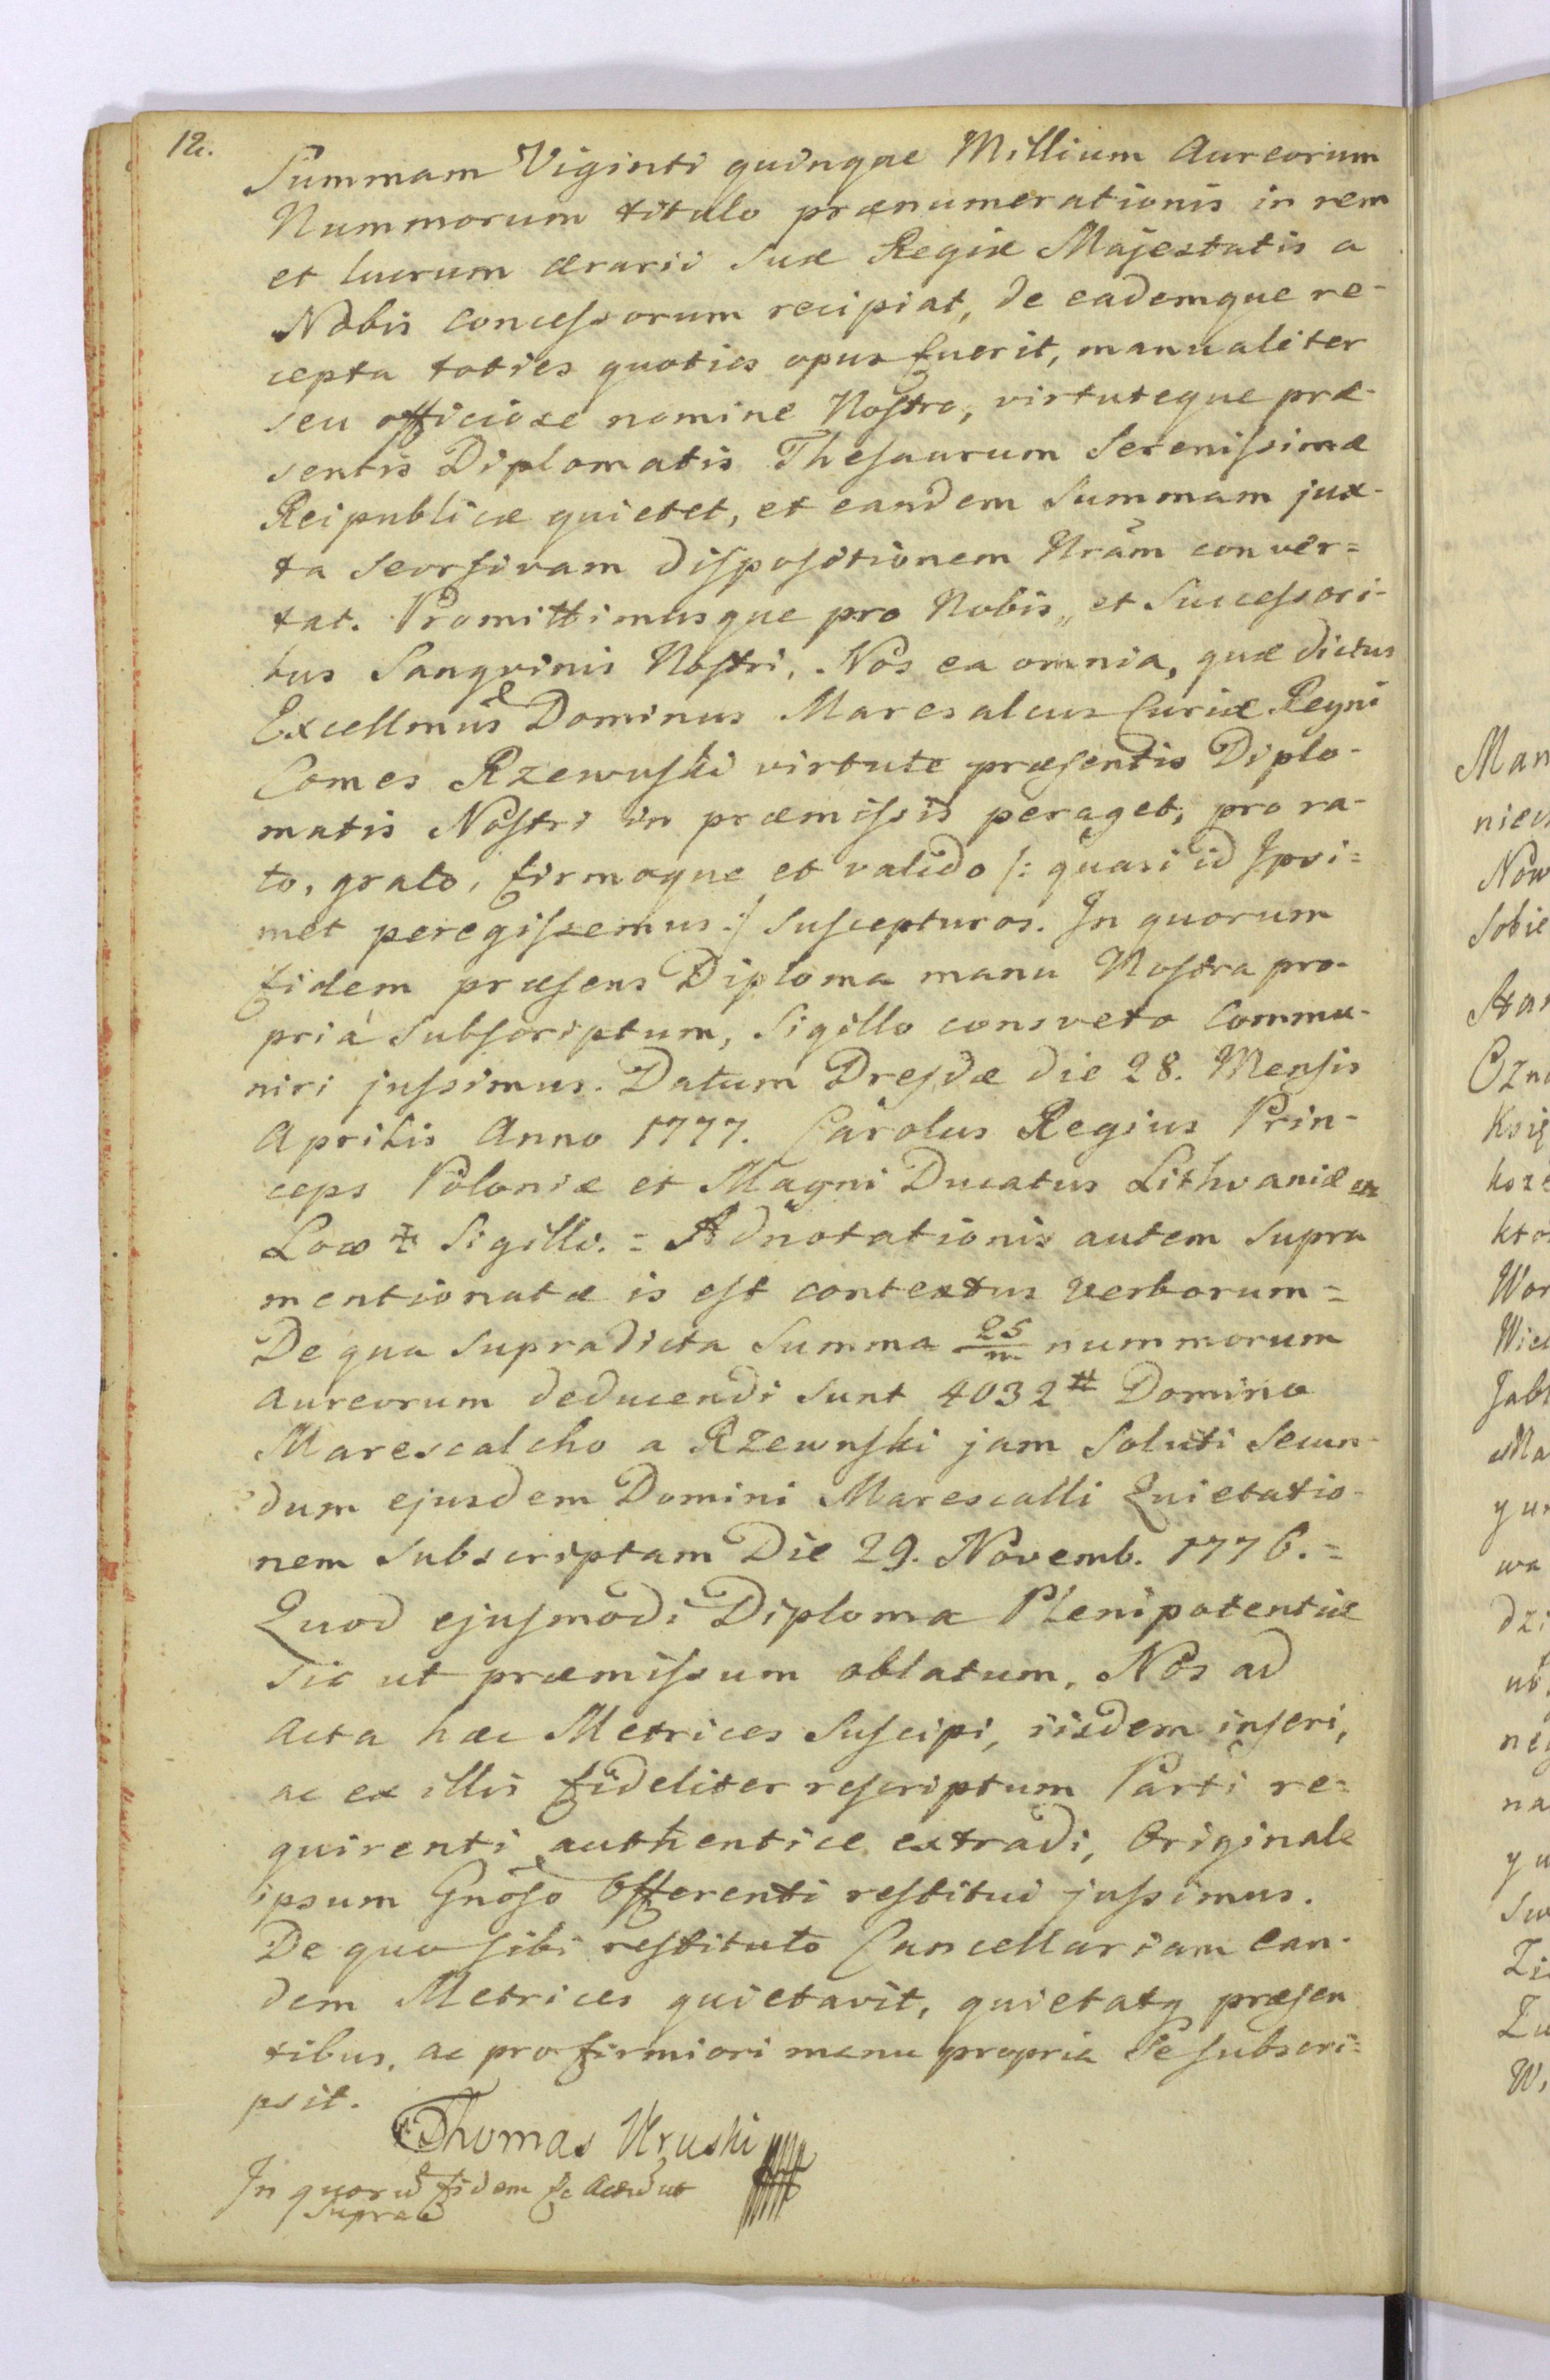 12.
Summam Viginti quinque Millium Aureorum
Nummorum titulo prænumerationis in rem
et lucrum ærarii Suæ Regiæ Majestatis a
Nobis concessorum recipiat, de eademque re-
cepta toties quoties opus fuerit, manualiter
seu officiose nomine Nostro, virtuteque præ-
sentis Diplomatis Thesaurum Serenissimæ
Reipublicæ quietet, et eandem Summam jux-
ta Seorsivam dispositionem Nrãm conver=
tat. Promittimusque pro Nobis, et Successori-
bus Sangvinis Nostri, Nos ea omnia, quæ dictus
Excellmus Dominus Maresalcus Curiæ Regni
Comes Rzewuski virtute præsentis Diplo-
matis Nostri in præmissis peraget, pro ra-
to, grato, firmoque et valido /: quasi id Ipsi=
met peregissemus :/ suscepturos. In quorum
fidem præsens Diploma manu Nostra pro-
priá subscriptum, Sigillo consveto commu-
niri jussimus. Datum Dresdæ die 28. Mensis
Aprilis Anno 1777. Carolus Regius Prin-
ceps Poloniæ et Magni Ducatus Lithvaniæ etc
Loco Sigilli. = Adnotationis autem supra
mentionatæ is est contextus verborum =
De qua supradicta Summa 25/m nummorum
aureorum deducendi sunt 4032# Domino
Marescalcho a Rzewuski jam soluti secun-
dum ejusdem Domini Marescalli Quietatio-
nem subscriptam Die 29. Novemb. 1776. =
Quod ejusmodi Diploma Plenipotentiæ
sic ut præmissum oblatum, Nos ad
Acta hæc Metrices suscipi, iisdem inseri,
ac ex illis fideliter rescriptum Parti re=
quirenti authentice extradi, Originale
ipsum Gnoso Offerenti restitui jussimus.
De quo sibi restituto Cancellariam ean-
dem Metrices quietavit, quietatq præsen
tibus, ac pro firmiori manu propria Se subscri=
psit.
Thomas Uruski
In quorũ fidem
supra
Man
niew
Now
Sobie
Ozna
Ksią
ksze
któ
Wor
Wiel
Jabł
Ma
y ur
wa
dzi
ub
neg
na
y u
Sw
Zi
Zu
W